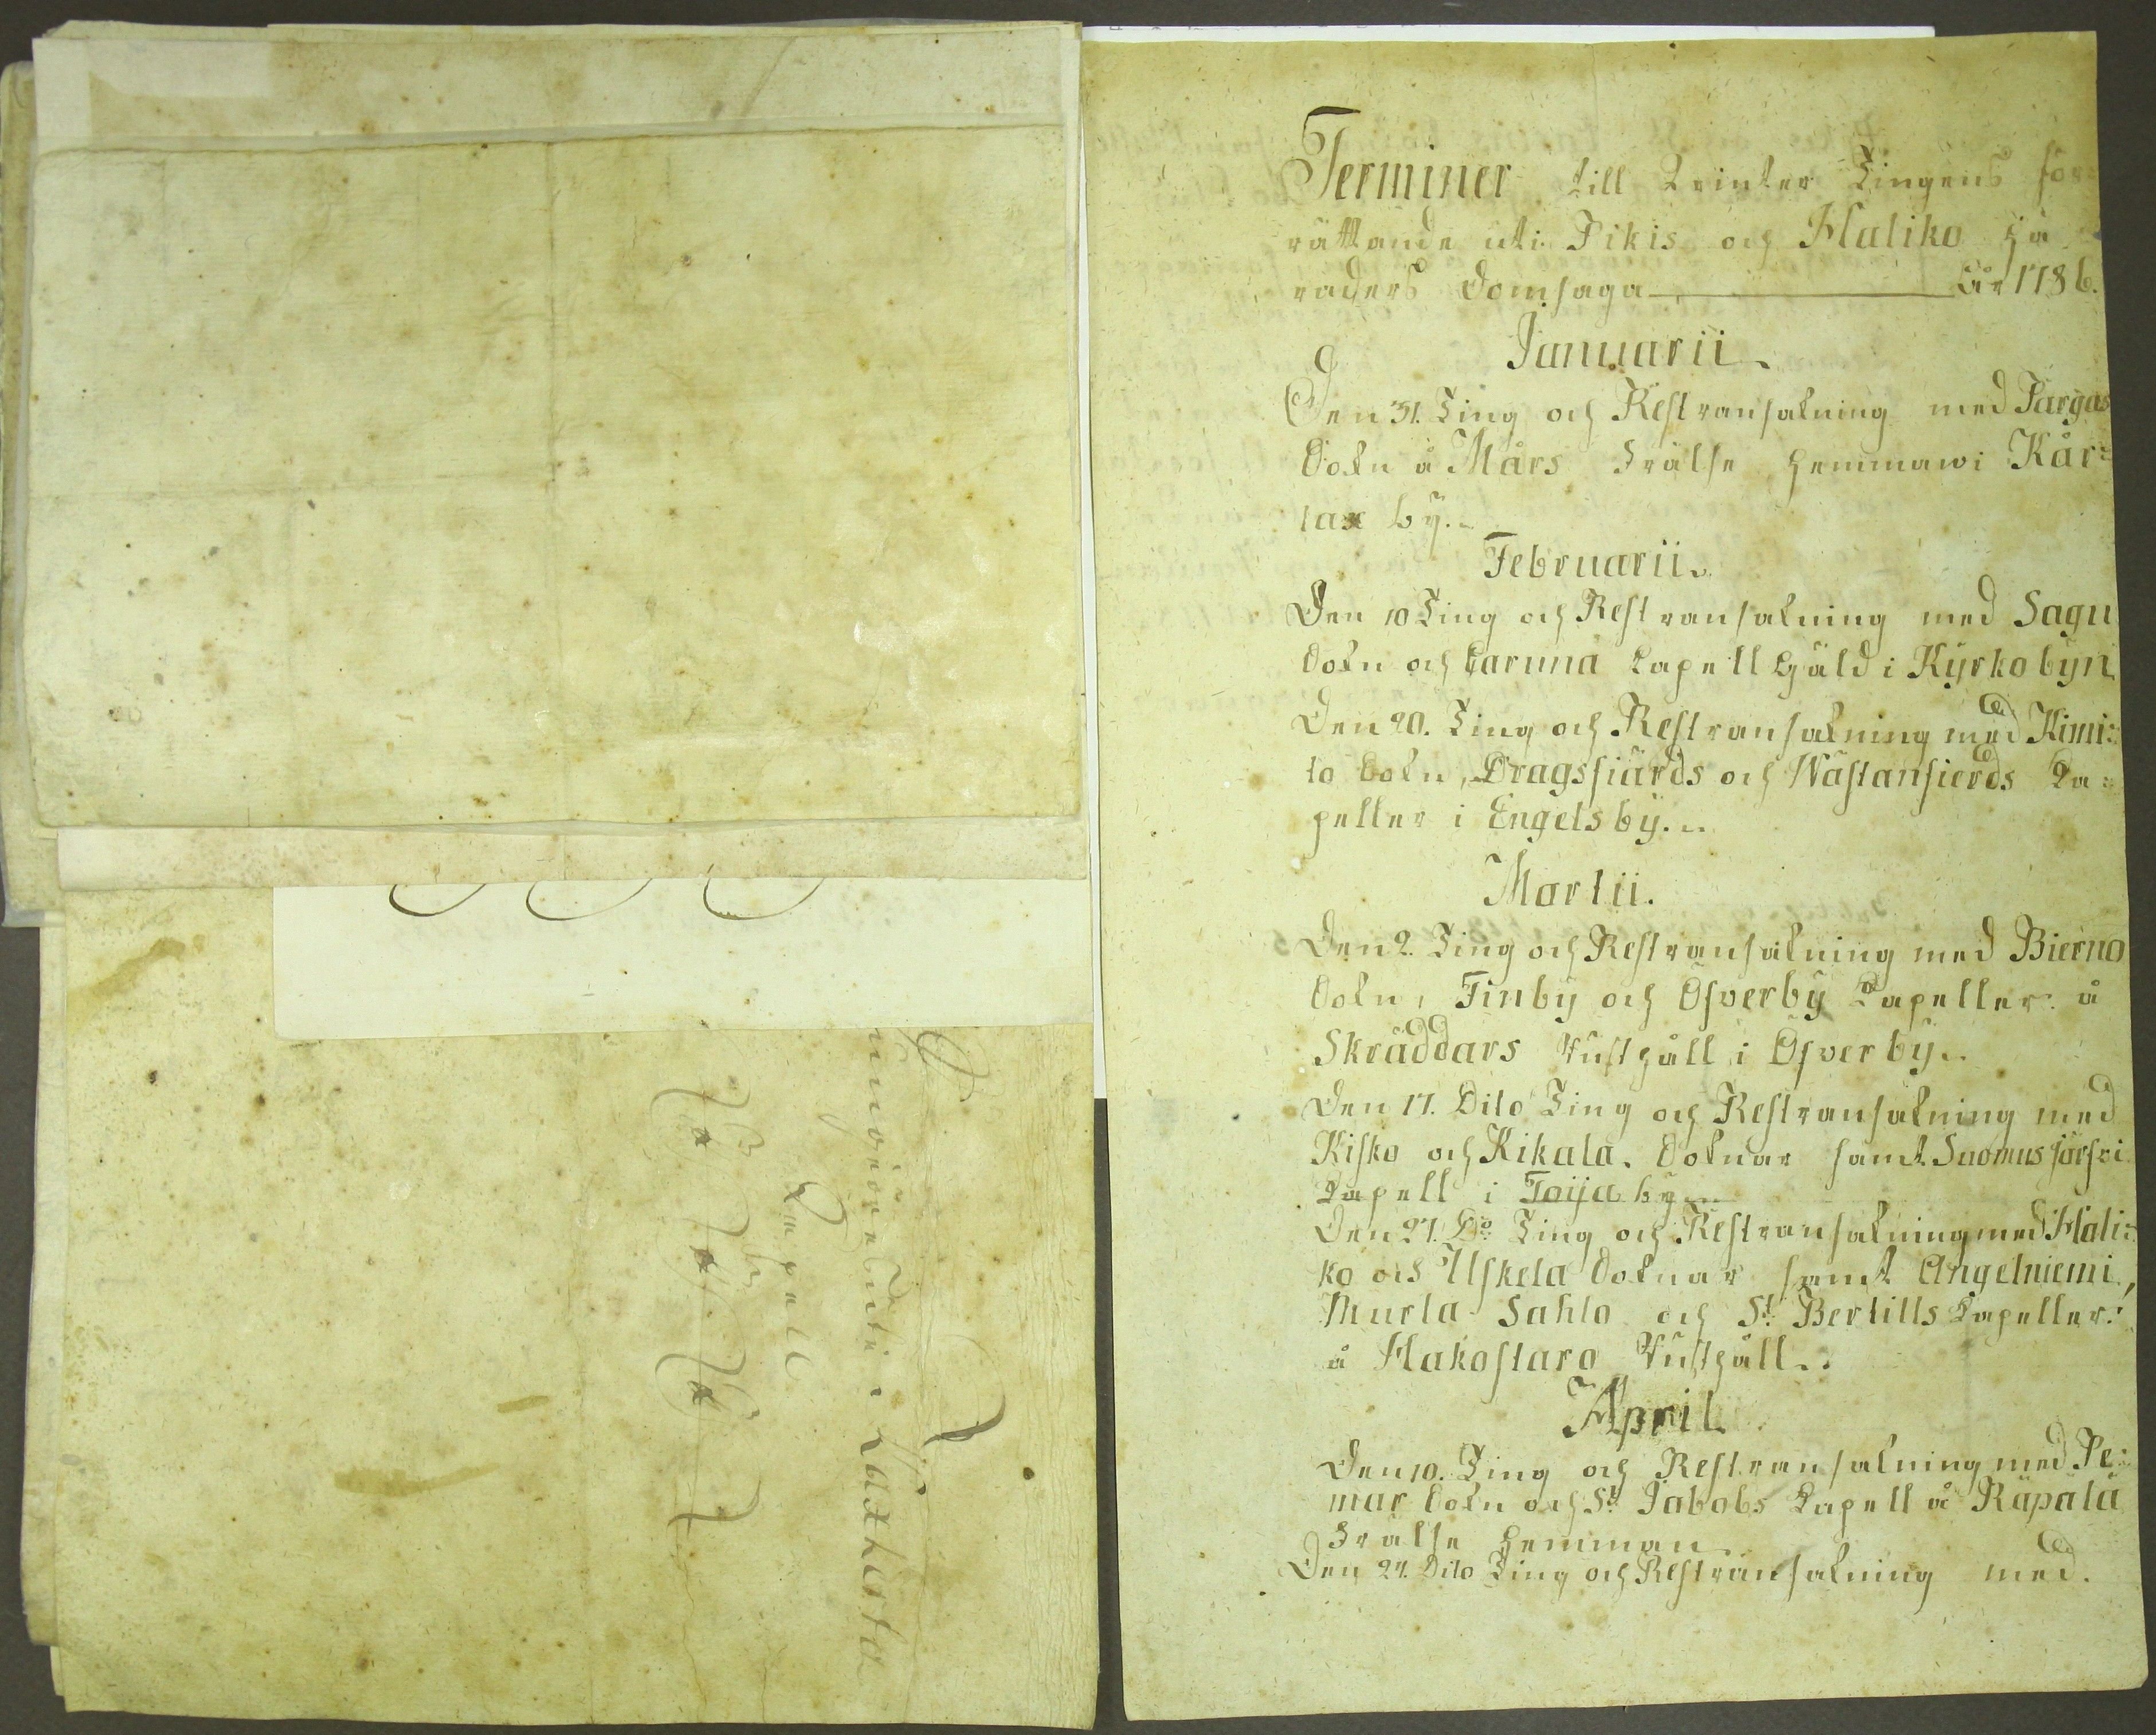 Terminer till Winter Tingens för
rättande uti Pikis och Haliko hä
raders Domsaga år 1786.
Januarii
Den 31. Ting och Restransakning med Pargas
Sokn å Mårs Frälse hemman i Kår=
lax by.
Februarii.
Den 10 Ting och Restransakning med Sagu
Sokn och Karuna Capell Gäld i Kyrkobyn
Den 20. Ting och Restransakning med Kimi=
to Sokn, Dragsfiärds och Wästanfierds Ca=
peller i Engelsby.
Martii.
Den 2. Ting och Restransakning med Bierno
Sokn, Finby och Öfverby Capeller å
Skräddars Rusthåll i Öfverby.
Den 17. Dito Ting och Restransakning med
Kisko och Kikala. Soknar samt Suomusjärfvi
Capell i Toija by
Den 27. Do Ting och Restransakning med Hali=
ko och Uskela Soknar samt Angelniemi,
Murla Sahlo och St Bertills Capeller.
å Hakostaro Rusthåll.
April
Den 10. Ting och Restransakning med Pe=
mar Sokn och St Jabobs Capell å Räpälä
Frälse hemman
Den 24. Dito Ting och Restransakning med.
Capell